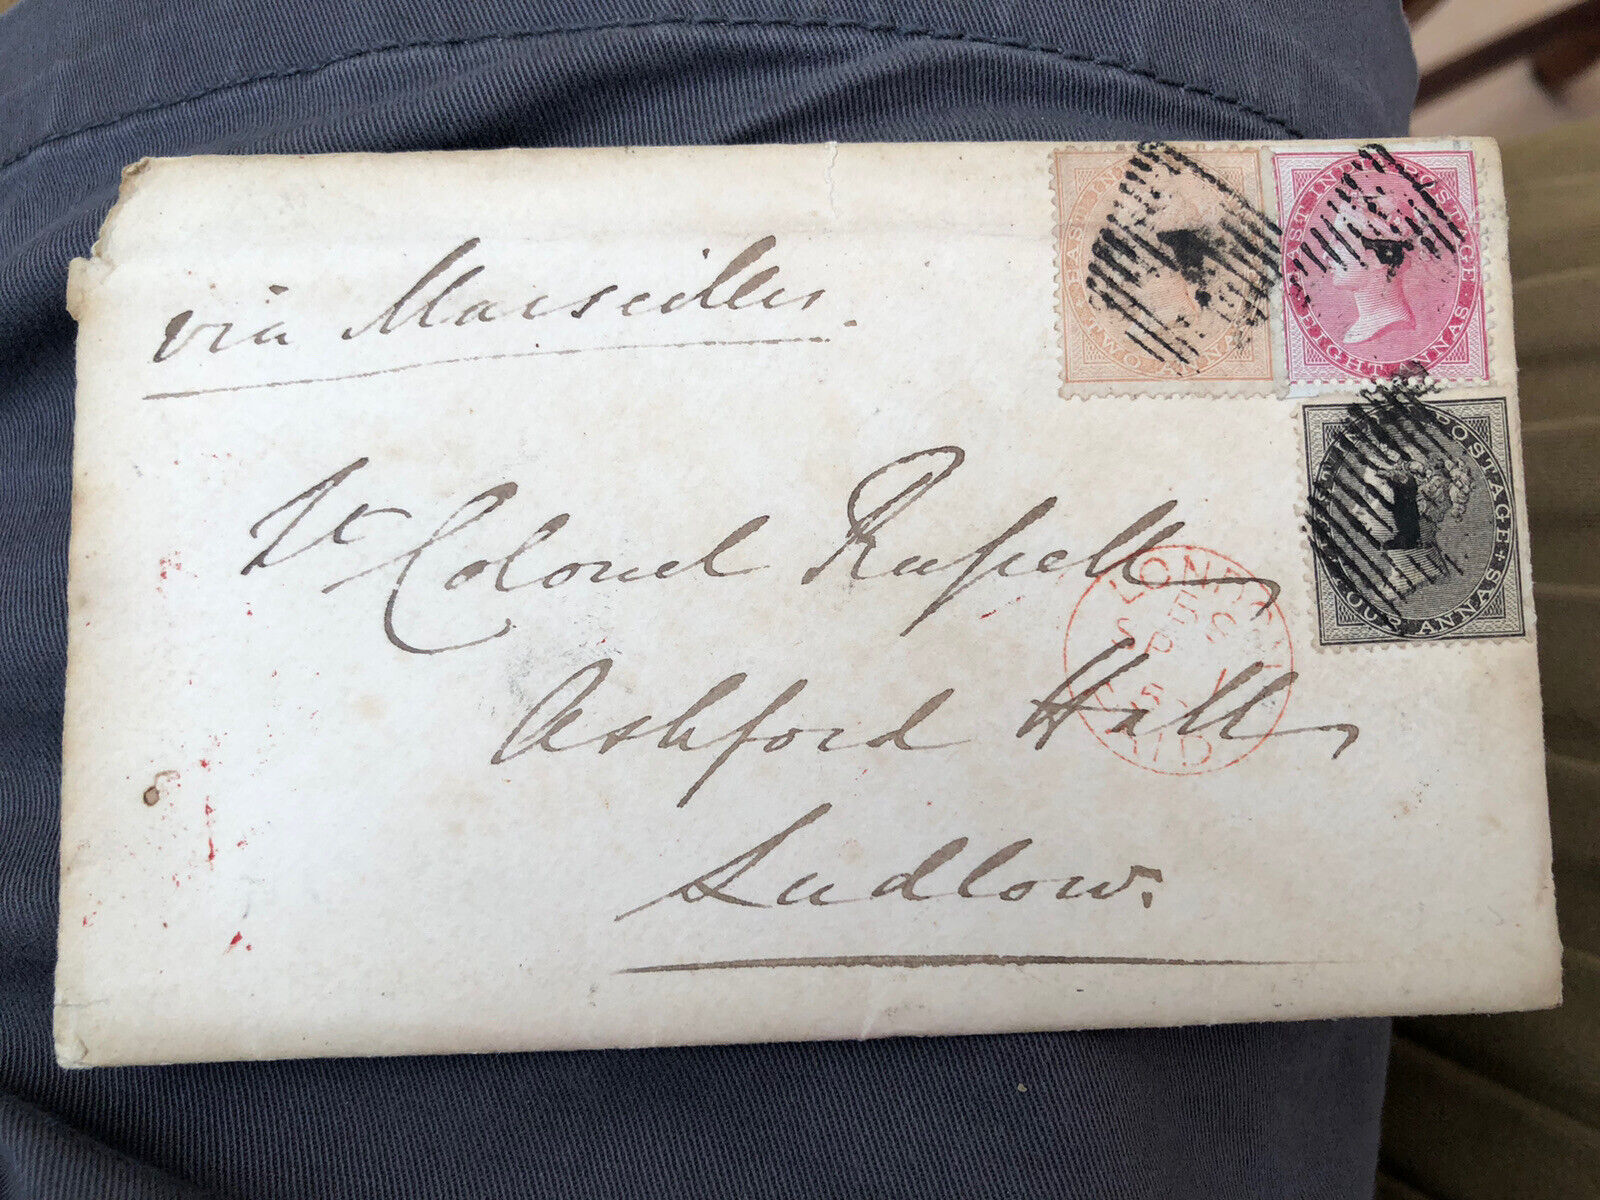 via Marseilles.
EAST INDIA POSTAGE
TWO ANNAS
EAST INDIA POSTAGE
EIGHT ANNAS
POSTAGE
FOUR ANNAS
1
Lt Colonel Rufsell,
Ashford Hall,
Ludlow.
LONDON
PAID